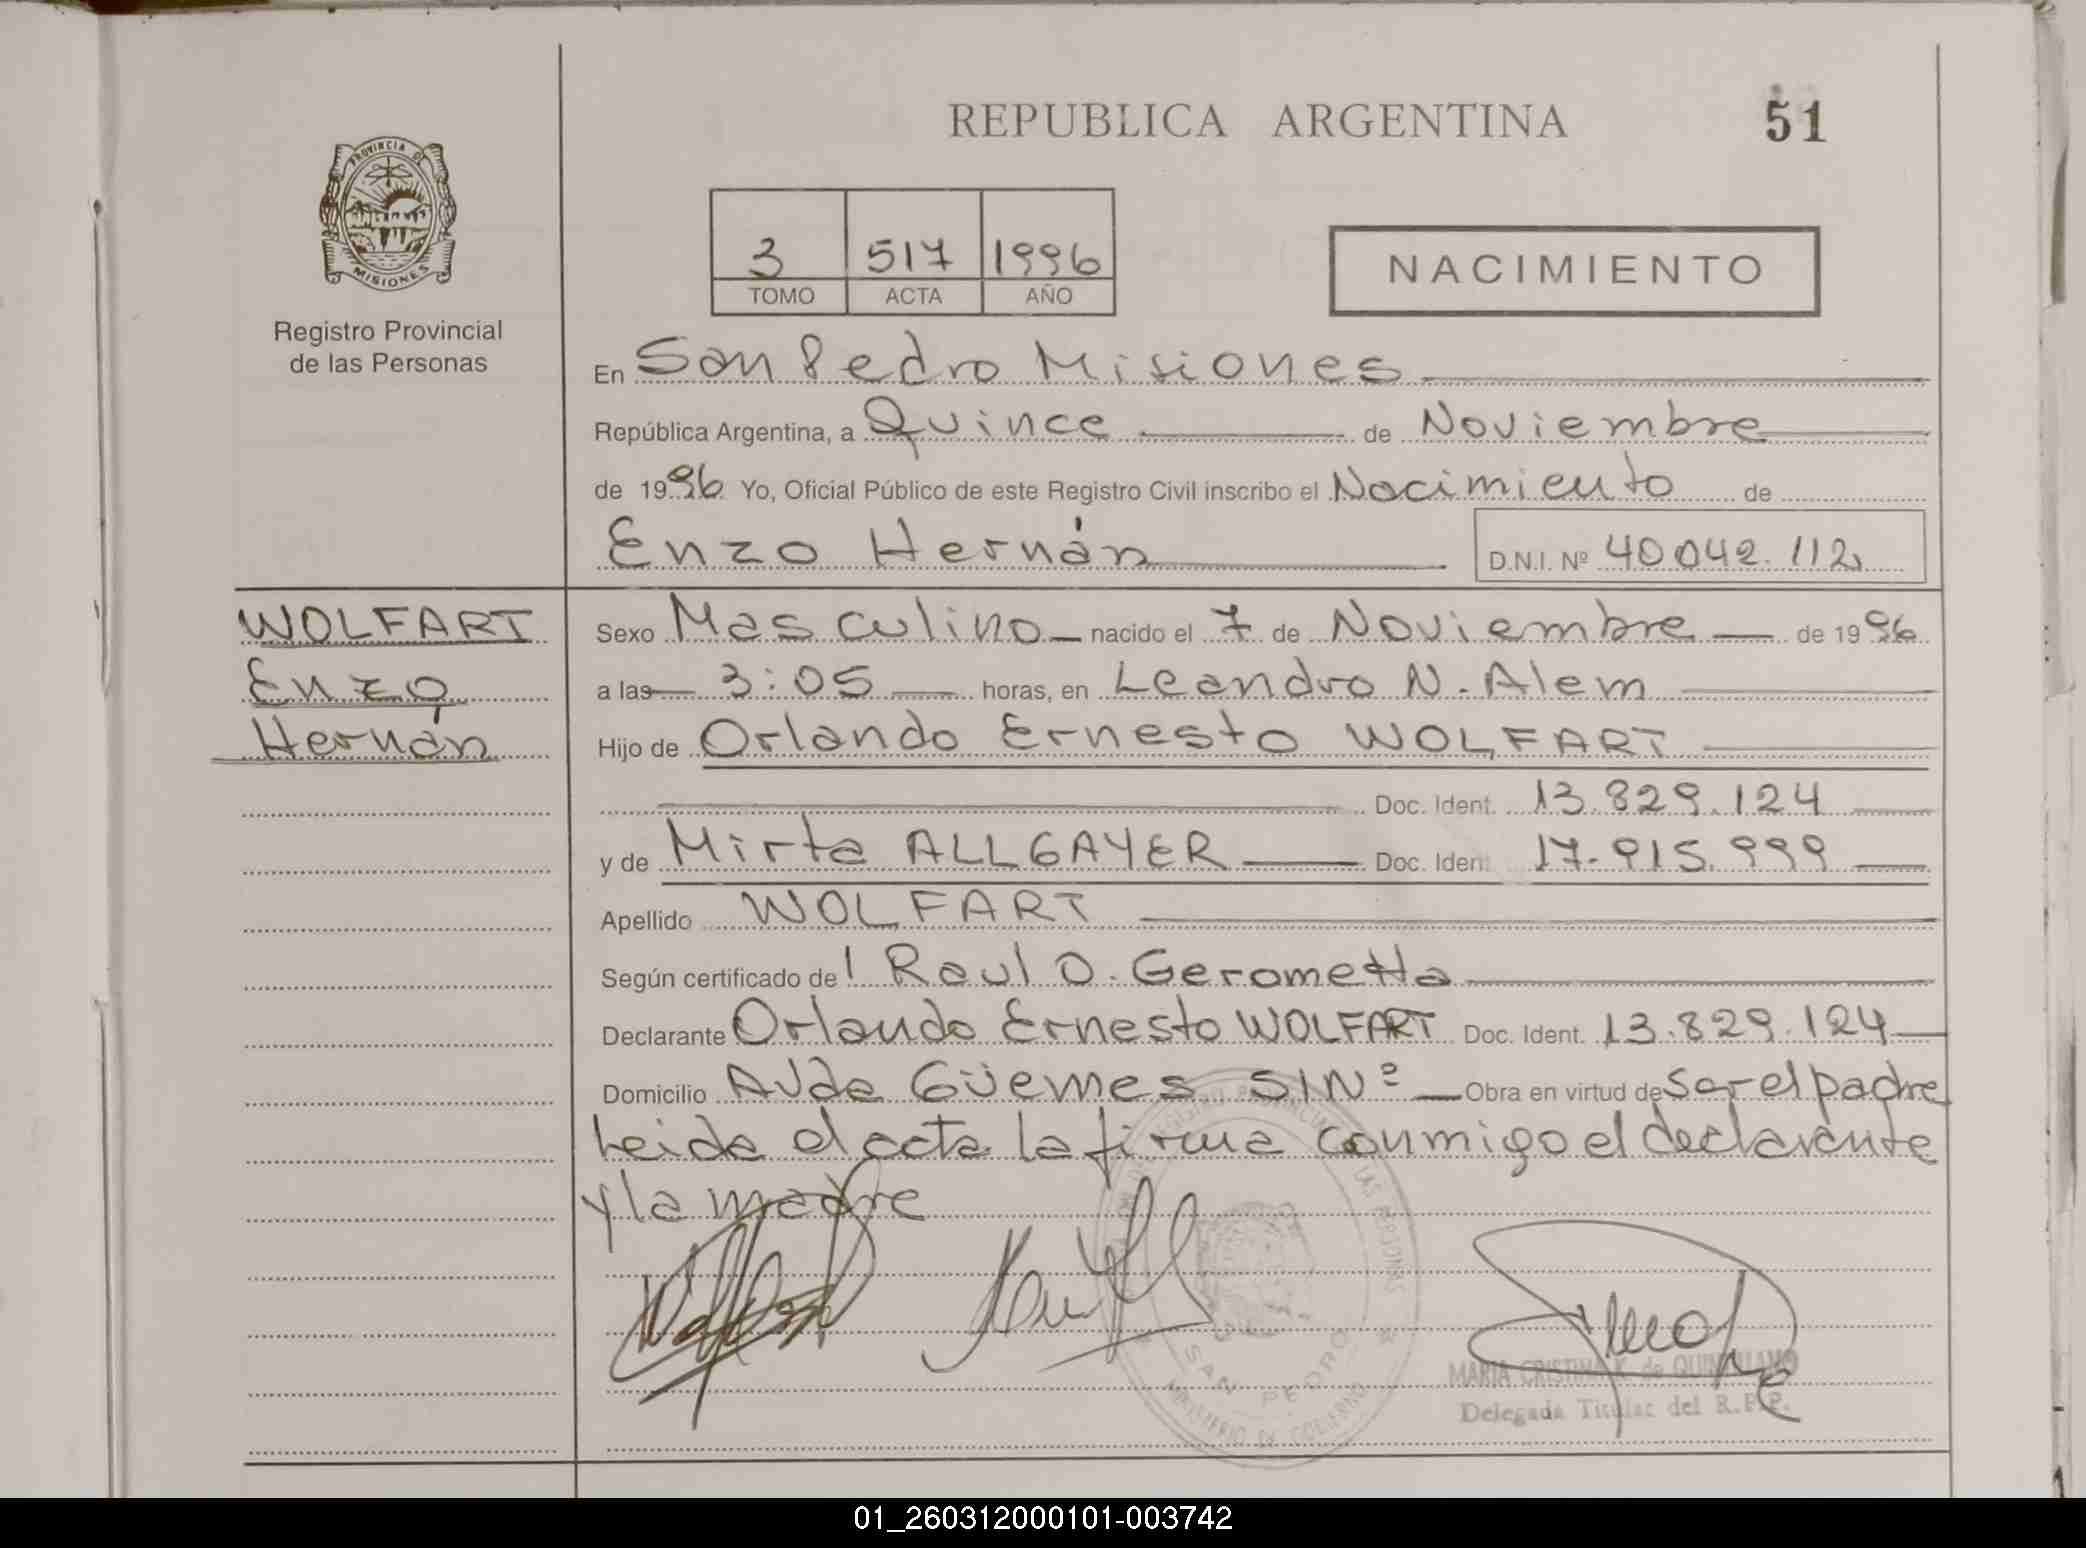 REPUBLICA ARGENTINA
51
PROVINCIA DE
MISIONES
Registro Provincial
de las Personas
3 517 1996
TOMO ACTA AÑO
NACIMIENTO
En San Pedro Misiones
República Argentina, a Quince de Noviembre
de 1996 Yo, Oficial Público de este Registro Civil inscribo el Nacimiento de
Enzo Hernán D.N.I. Nº 40.042.112
WOLFART
Enzo
Hernán
Sexo Masculino nacido el 7 de Noviembre de 1996
a las 3:05 horas, en Leandro N. Alem
Hijo de Orlando Ernesto WOLFART
Doc. Ident. 13.829.124
y de Mirta ALLGAYER Doc. Ident. 17.915.999
Apellido WOLFART
Según certificado de Raul O. Gerometta
Declarante Orlando Ernesto WOLFART Doc. Ident. 13.829.124
Domicilio Avda Güemes S/Nº Obra en virtud de ser el padre
Leida el acta la firma conmigo el declarante
y la madre
SAN PEDRO
MINISTERIO DE GOBIERNO
MARIA CRISTINA K. de QUINTALAMO
Delegada Titular del R.P.P.
01_260312000101-003742